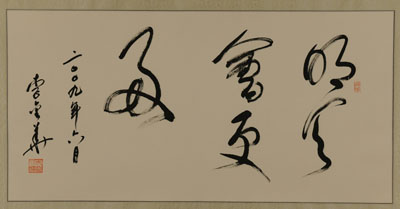 明天
會更
好
二〇〇九年六月
李金華